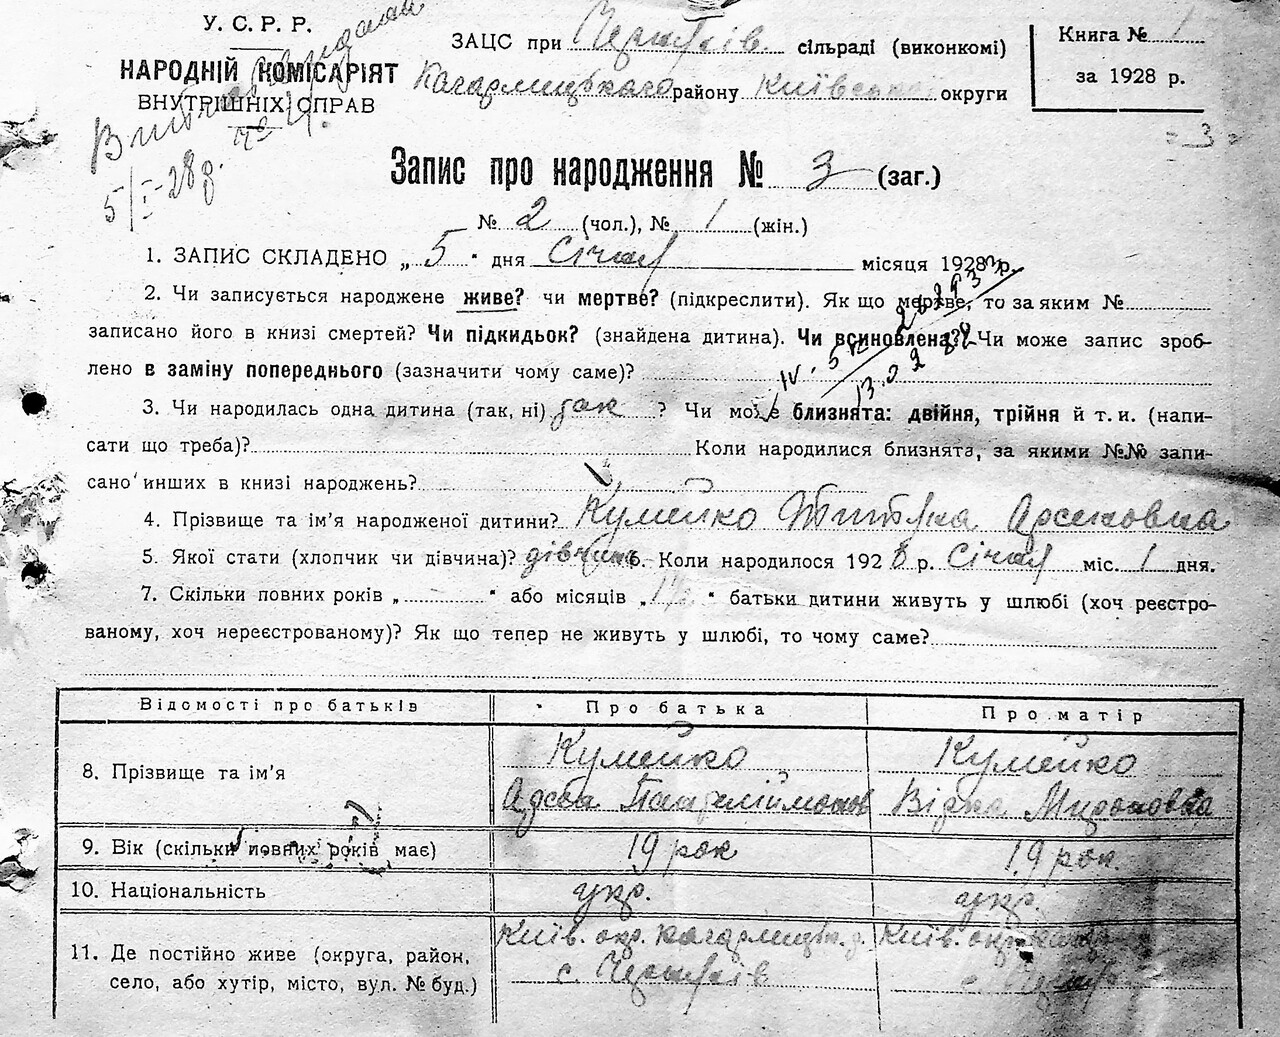 У. С. Р. Р.
НАРОДНІЙ КОМІСАРІЯТ
ВНУТРІШНІХ СПРАВ
5/I-28 р.
ЗАЦС при сільраді (виконкомі)
Кагарлицького району Київської округи
Книга № 1
за 1928 р.
- 3 -
Запис про народження № 3 (заг.)
№ 2 (чол.), № 1 (жін.)
1. ЗАПИС СКЛАДЕНО „ 5 “ дня Січня місяця 1928 р.
2. Чи записується народжене живе? чи мертве? (підкреслити). Як що мертве, то за яким №
записано його в книзі смертей? Чи підкидьок? (знайдена дитина). Чи всиновлена? Чи може запис зроб-
лено в заміну попереднього (зазначити чому саме)?
3. Чи народилась одна дитина (так, ні) так ? Чи може близнята: двійня, трійня й т. и. (напи-
сати що треба)? Коли народилися близнята, за якими №№ запи-
сано инших в книзі народжень?
4. Прізвище та ім’я народженої дитини? Кумейко Арсеновна
5. Якої статі (хлопчик чи дівчина)? дівчина 6. Коли народилося 1928 р. Січня міс. 1 дня.
7. Скільки повних років „ “ або місяців „ “ батьки дитини живуть у шлюбі (хоч реєстро-
ваному, хоч нереєстрованому)? Як що тепер не живуть у шлюбі, то чому саме?
Відомості про батьків Про батька Про матір
8. Прізвище та ім’я Кумейко Кумейко
Мироновна
9. Вік (скільки повних років має) 19 рок 19 рок
10. Національність укр. укр.
11. Де постійно живе (округа, район, Київ. окр. Кагарлицьк. р. Київ. окр.
село, або хутір, місто, вул. № буд.) с.